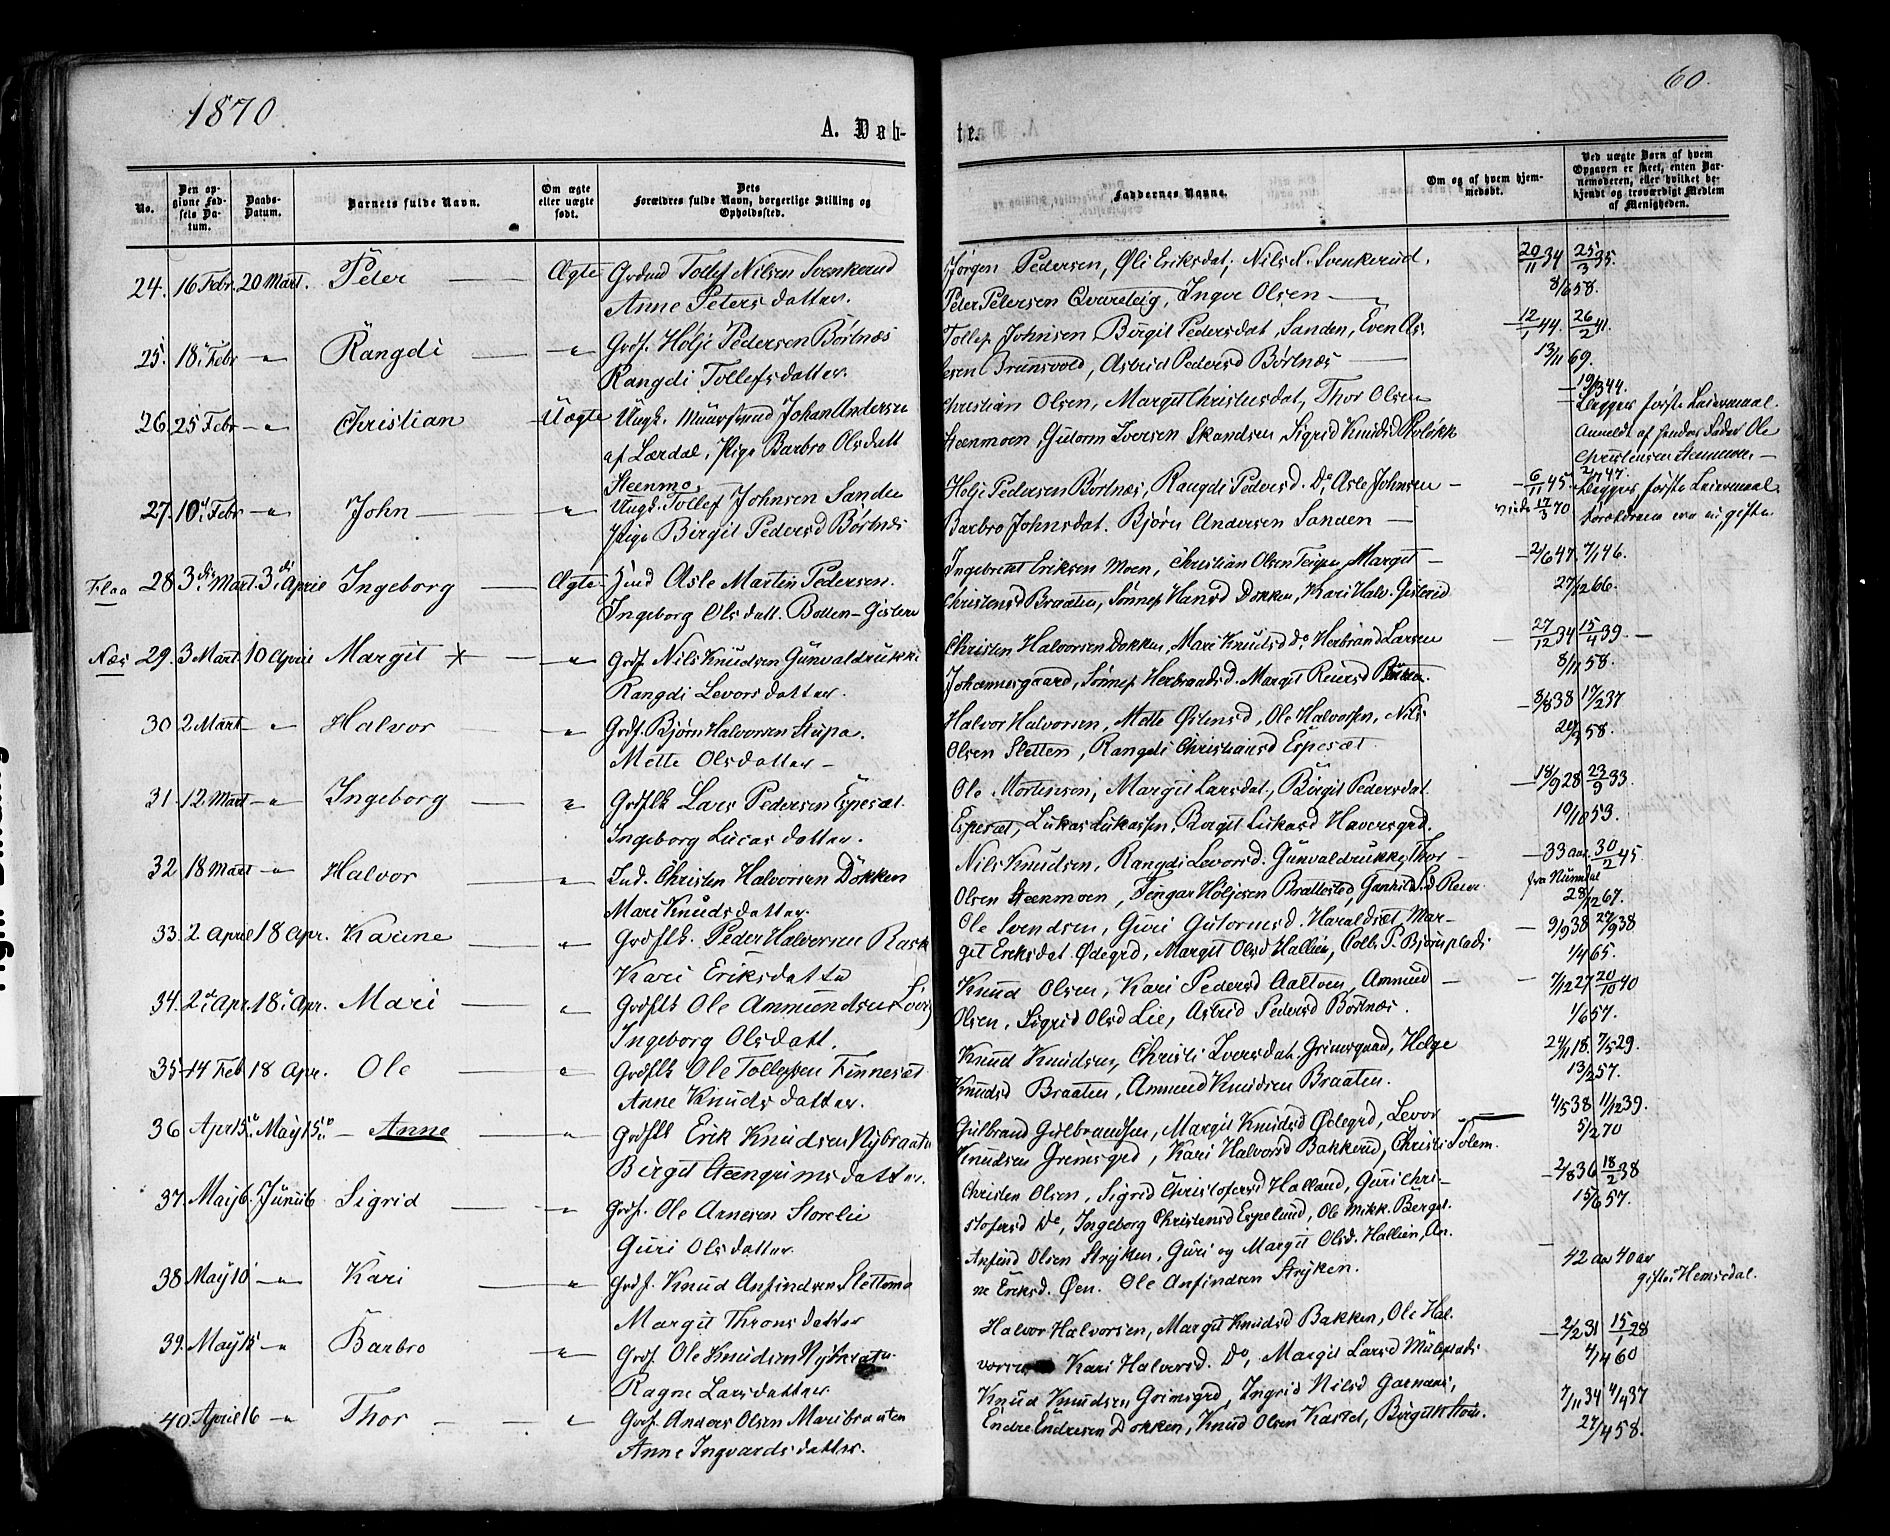 1870.
A. Døb-
No.
Den opgivne Fødsels Datum.
Daabs-Datum.
Barnets fulde Navn.
Om ægte eller uægte født.
Dets Forældres fulde Navn, borgerlige Stilling og Opholdssted.
24. 16 Febr. 20 Mart. Peter Ægte Grdmd Tollef Nilsen Svenkerud
Anne Petersdatter.
25. 18 Febr - " - Rangdi - " - Grdf. Holje Pedersen Børtnæs
Rangdi Tollefsdatter.
26 25 Febr - " - Christian Uægte Ungk. Johan Andersen
af Lærdal, Pige Barbro Olsdatt
Steenmo
27. 10 Febr - " - John - " - Ungk. Tollef Johnsen Sanden
Pige Birgit Pedersd Børtnæs
Flaa 28 3die Mart. 3di April Ingeborg Ægte Asle Martin Pedersen.
Ingeborg Olsdatt.
Næs 29. 3 Mart. 10 April Margit x - " - Grdf Nils Knudsen Gunvaldrukke
Rangdi Levorsdatter.
30 2 Mart - " - Halvor - " - Grdf. Bjørn Halvorsen Stupa.
Mette Olsdatter -
31. 12 Mart - " - Ingeborg " Grdflk Lars Pedersen Espeset.
Ingeborg Lucasdatter.
32 18 Mart - " - Halvor " Ind. Christen Halvorsen Dokken
Mari Knudsdatter.
33. 2 April 18 Apr. Karine " Grdflk. Peder Halvorsen Rask
Kari Eriksdatter
34. 2 Apr. 18 Apr. Mari " Grdflk Ole Ammundsen
Ingeborg Olsdatt.
35 14 Feb 18 Apr. Ole " Grdflk Ole Tollefsen Finneset
Anne Knudsdatter.
36 Apr 15 May 15 Anne " Grdflk Erik Knudsen Nybraaten
Birgit Steengrimsdatter.
37. May 6 Juni 6 Sigrid - " - Grdf. Ole Arnesen Storelie
Guri Olsdatter.
38 May 10 - " - Kari " Grdf. Knud Anfindsen Slettemo
Margit Thronsdatter
39. May 15 - " - Barbro - " - Grdf. Ole Knudsen Nybraaten
Ragne Larsdatter
40. April 16 - " - Thor " Grdf. Anders Olsen Maribraaten
Anne Ingvardsdatter.
60.
te.
Faddernes Navne.
Om og af hvem hjemmedøbt.
Ved uægte Børn af hvem Opgaven er skeet, enten Barnemoderen, eller hvilket bekjendt og troværdigt Medlem af Menigheden.
Jørgen Pedersen, Oli Eriksdat, Nils N. Svenkerud. 20/11 34 25/3 35.
Peter Petersen Qvareteig, Inger Olsen 8/6 58.
Tollef Johnsen Birgit Pedersdat Sanden, Even As- 12/1 44. 26/2 41.
lesen Brunsvold, Astrid Pedersd Børtnæs 13/11 69.
Christian Olsen, Margit Christensdat, Thor Olsen 19/3 44.
Begges første Leiermaal.
Steenmoen, Gutorm Iversen Skandsen Sigrid Knudsd Anmeldt af hendes Fader Ole
Christensen Steenmoen -
Holje Pedersen Børtnæs, Rangdi Pedersd. Do, Asle Johnsen - 6/11 45 2/7 47.
Begges første Leiermaal
Barbro Johnsdat. Bjørn Andersen Sanden 17/3 70 Forældrene ere nu gifte.
Ingebreth Eriksen Moen, Christian Olsen Margit - 2/6 47. 7/1 46.
Christensd Braaten, Sønnep Hansd Dokken, Kari Halv. 27/12 66.
Christen Halvorsen Dokken, Mari Knudsd Do Herbrand Larsen 27/12 34 15/4 39.
Johannesgaard, Sønnep Herbrandsd. Margit Reiersd 8/11 58.
Halvor Halvorsen, Mette Østensd, Ole Halvorsen, Nils 8/8 38 17/2 37
Olsen Sletten, Rangdi Christiansd Espeset 58.
Ole Mortensen, Margit Larsdat, Birgit Pedersdat 18/9 28 23/9 33.
Espeset, Lukas Lukassen, Birgit Lukasd Haversgrd. 19/10 53.
Nils Knudsen, Rangdi Levorsd. Gunvaldrukke, Thor - 33 aar. 30/2 45
fra Numedal
Olsen Steenmoen, Fingar Holjesen Brattested, 28/12 67.
Ole Svendsen, Guri Gutormsd. Haraldset, Mar- 9/9 38 27/9 38
git Eriksdat Ødegrd, Margit Olsd Hallien, 1/4 65.
Knud Olsen, Kari Pedersd Aaltoen, Ammund - 7/12 27 20/10 40
Olsen, Sigrid Olsd Lie, Astrid Pedersd Børtnæs. 1/6 57.
Knud Knudsen, Christi Iversdat Grimsgaard, Helge 24/11 18 7/5 29.
Knudsd Braaten, Ammund Knudsen Braaten. 13/2 57.
Gulbrand Gulbrandsen, Margit Knudsd Ødegrd, Levor 4/5 38 1/12 39.
Knudsen Grimsgrd, Kari Halvorsd Bakkerud, Christi 5/2 70
Christen Olsen, Sigrid Christofersd Halland, Guri Chri- 2/8 36 18/2 38
stofersd Do, Ingeborg Christensd Espelund, Ole Mikk. Berget. 15/6 57.
Anfind Olsen Stryken, Guri og Margit Olsd. Hallien, An-
ne Eriksd. Øen. Ole Anfindsen Stryken. 42 aar 40 aar
gifte i Hemsedal.
Halvor Halvorsen, Margit Knudsd Bakken, Ole Hal- 2/2 31 15/1 28
vorsen Kari Halvorsd. Do, Margit Larsd 4/4 60
Knud Knudsen Grimsgrd, Ingrid Nilsd Garnaas, 7/11 34 4/4 37
Endre Endresen Dokken, Knud Olsen Kastet, Birgit 27/4 58.